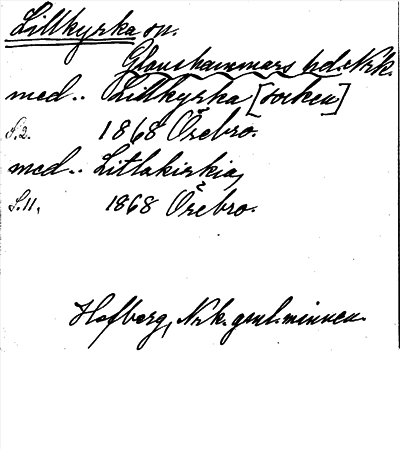 Lillkyrka sn.
Glanshammars hd. Nrk.
med.. Lillkyrka [socken]
S.2. 1868 Örebro.
med.. Litlakirkia,
S.11, 1868 Örebro.
Hofberg, Nrk. gml. minnen.